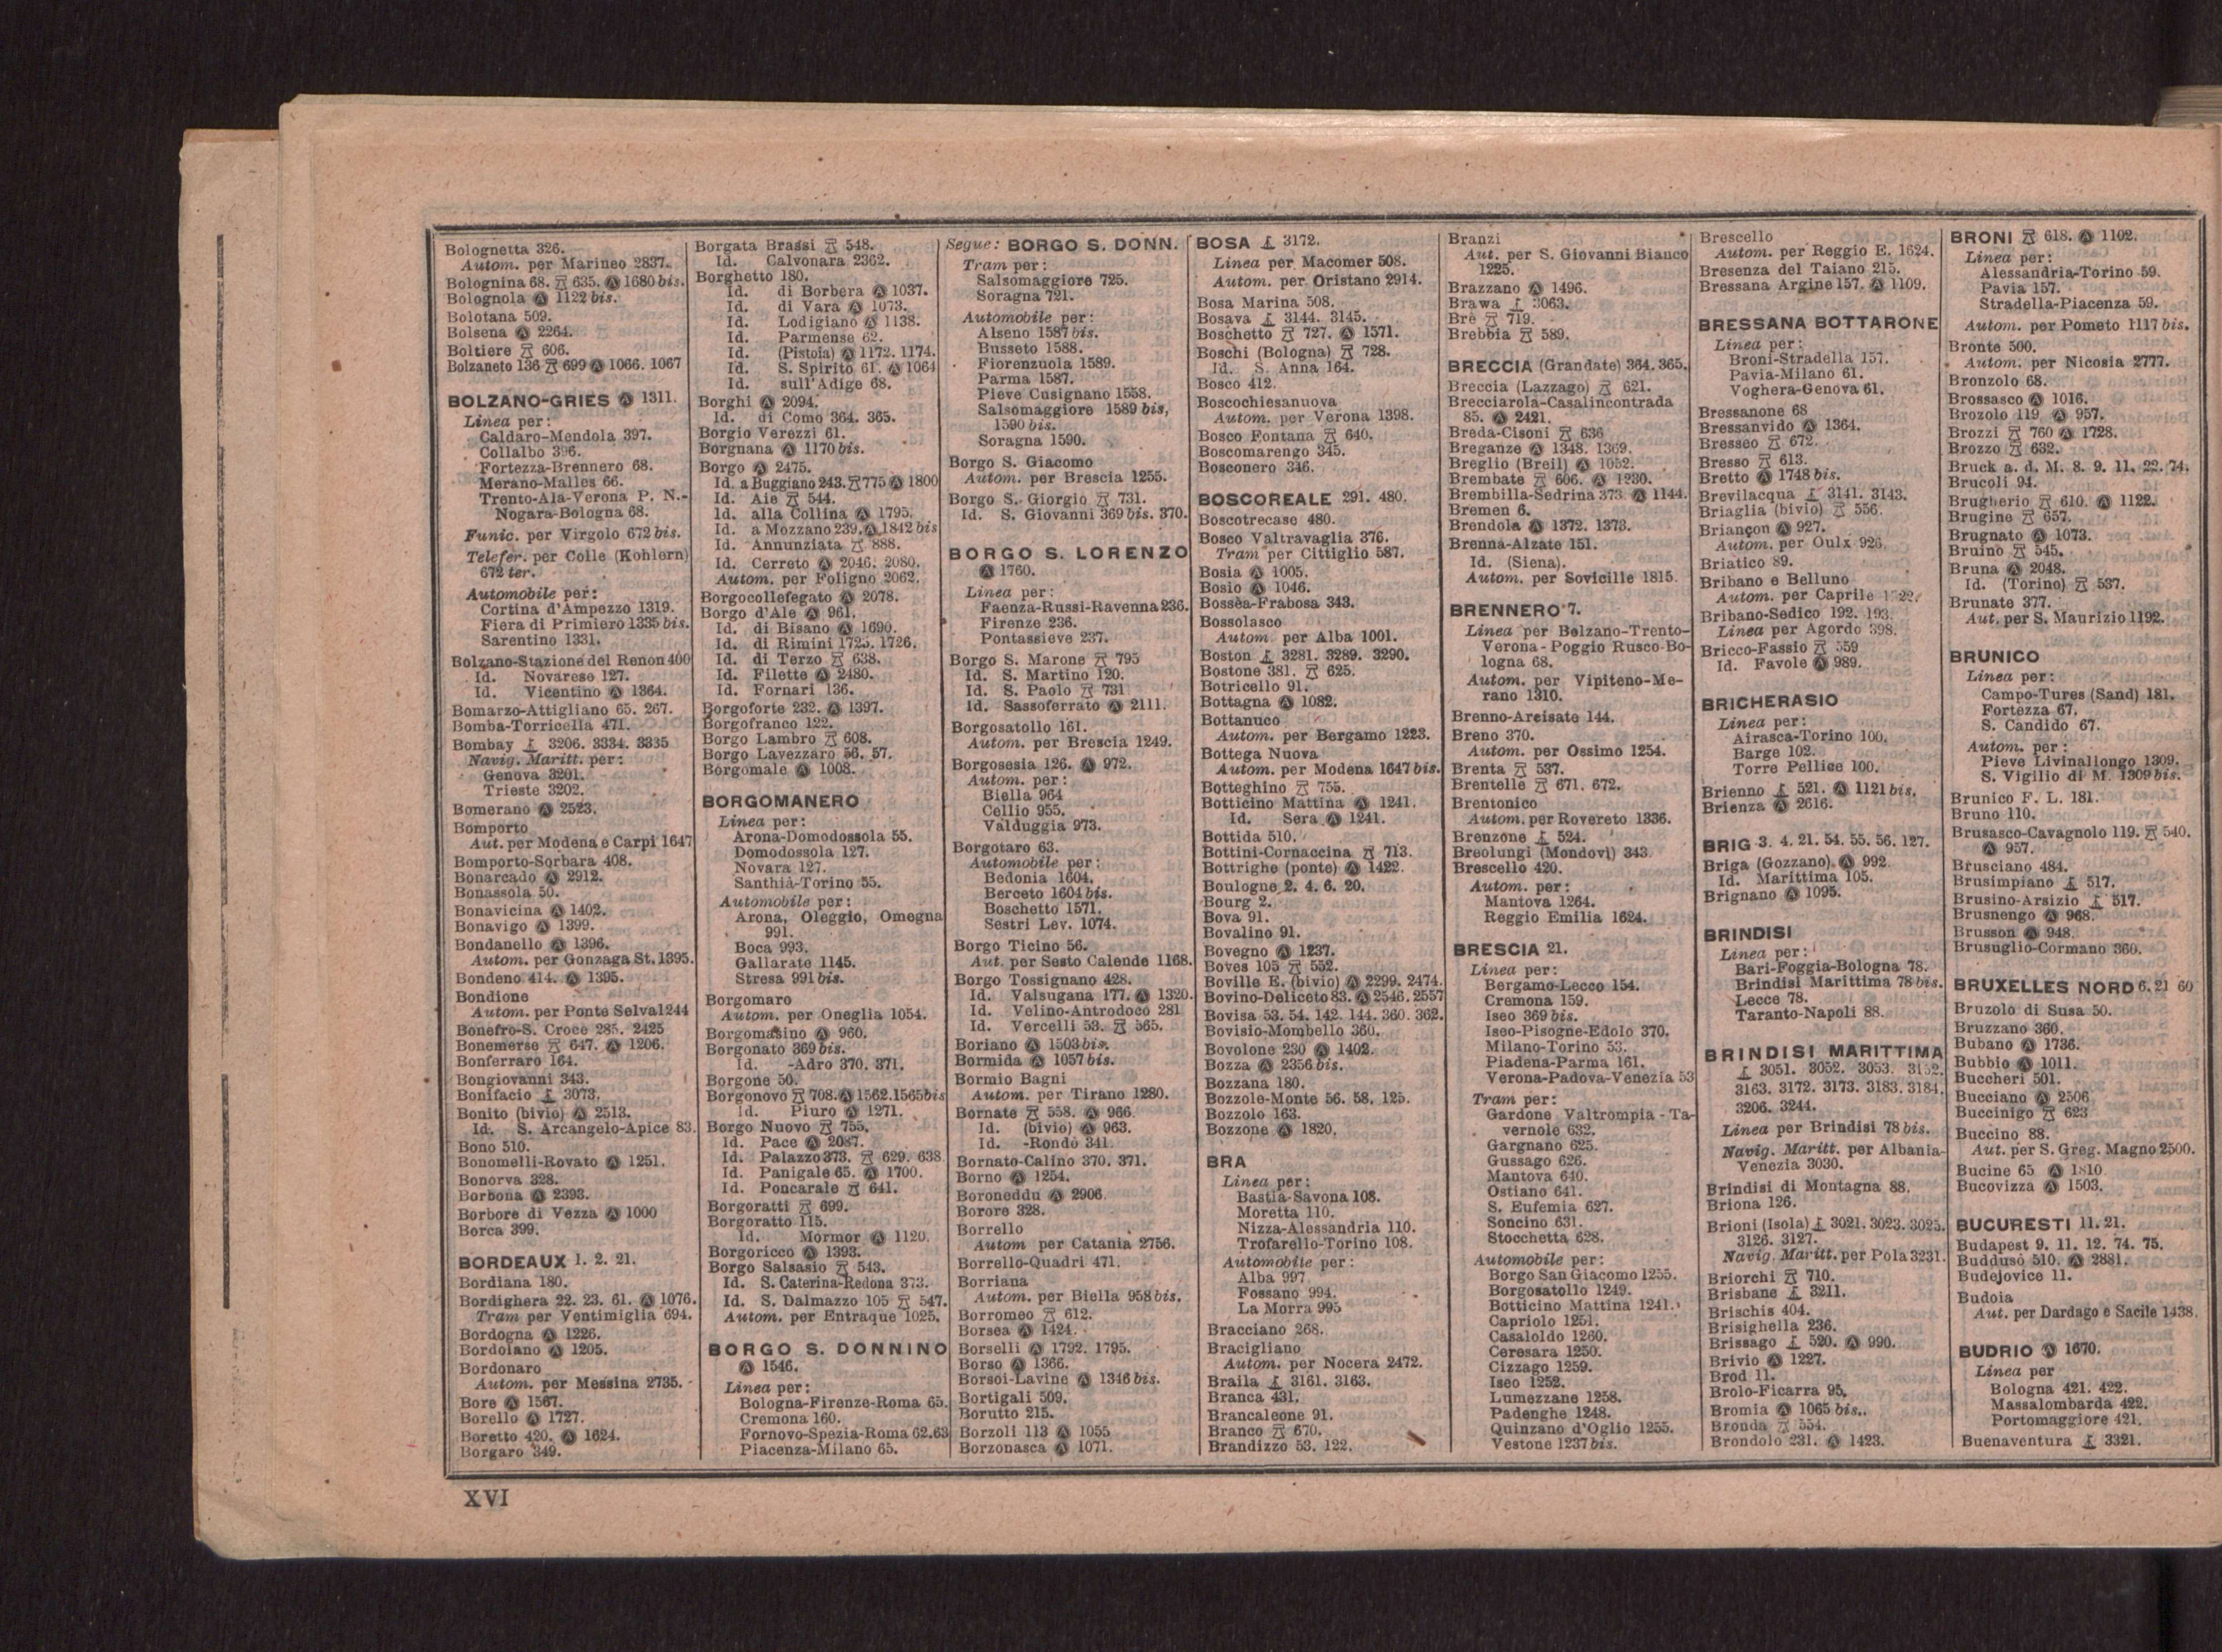 Bolognetta 326.
Autom. per Marineo 2837.
Bolognina 68. 635. Ⓐ 1680 bis.
Bolognola Ⓐ 1122 bis.
Bolotana 509.
Bolsena Ⓐ 2264.
Boltiere 606.
Bolzaneto 136 699 Ⓐ 1066. 1067
BOLZANO-GRIES Ⓐ 1311.
Linea per:
Caldaro-Mendola 397.
Collalbo 396.
Fortezza-Brennero 68.
Merano-Malles 66.
Trento-Ala-Verona P. N.-
Nogara-Bologna 68.
Funic. per Virgolo 672 bis.
Telefer. per Colle (Kohlern)
672 ter.
Automobile per:
Cortina d'Ampezzo 1319.
Fiera di Primiero 1335 bis.
Sarentino 1331.
Bolzano-Stazione del Renon 400
Id. Novarese 127.
Id. Vicentino Ⓐ 1364.
Bomarzo-Attigliano 65. 267.
Bomba-Torricella 471.
Bombay 3206. 3334. 3335
Navig. Maritt. per:
Genova 3201.
Trieste 3202.
Bomerano Ⓐ 2523.
Bomporto
Aut. per Modena e Carpi 1647
Bomporto-Sorbara 408.
Bonarcado Ⓐ 2912.
Bonassola 50.
Bonavicina Ⓐ 1402.
Bonavigo Ⓐ 1399.
Bondanello Ⓐ 1396.
Autom. per Gonzaga St. 1395.
Bondeno 414. Ⓐ 1395.
Bondione
Autom. per Ponte Selva 1244
Bonefro-S. Croce 285. 2425
Bonemerse 647. Ⓐ 1206.
Bonferraro 164.
Bongiovanni 343.
Bonifacio 3073.
Bonito (bivio) Ⓐ 2513.
Id. S. Arcangelo-Apice 83.
Bono 510.
Bonomelli-Rovato Ⓐ 1251.
Bonorva 328.
Borbona Ⓐ 2393.
Borbore di Vezza Ⓐ 1000
Borca 399.
BORDEAUX 1. 2. 21.
Bordiana 180.
Bordighera 22. 23. 61. Ⓐ 1076.
Tram per Ventimiglia 694.
Bordogna Ⓐ 1226.
Bordolano Ⓐ 1205.
Bordonaro
Autom. per Messina 2735.
Bore Ⓐ 1567.
Borello Ⓐ 1727.
Boretto 420. Ⓐ 1624.
Borgaro 349.
Borgata Brassi 548.
Id. Calvonara 2362.
Borghetto 180.
Id. di Borbera Ⓐ 1037.
Id. di Vara Ⓐ 1073.
Id. Lodigiano Ⓐ 1138.
Id. Parmense 62.
Id. (Pistoia) Ⓐ 1172. 1174.
Id. S. Spirito 61. Ⓐ 1064
Id. sull'Adige 68.
Borghi Ⓐ 2094.
Id. di Como 364. 365.
Borgio Verezzi 61.
Borgnana Ⓐ 1170 bis.
Borgo Ⓐ 2475.
Id. a Buggiano 243. 775 Ⓐ 1800
Id. Aie 544.
Id. alla Collina Ⓐ 1795.
Id. a Mozzano 239. Ⓐ 1842 bis
Id. Annunziata 888.
Id. Cerreto Ⓐ 2046. 2080.
Autom. per Foligno 2062.
Borgocollefegato Ⓐ 2078.
Borgo d'Ale Ⓐ 961.
Id. di Bisano Ⓐ 1690.
Id. di Rimini 1725. 1726.
Id. di Terzo 638.
Id. Filette Ⓐ 2480.
Id. Fornari 136.
Borgoforte 232. Ⓐ 1397.
Borgofranco 122.
Borgo Lambro 608.
Borgo Lavezzaro 56. 57.
Borgomale Ⓐ 1008.
BORGOMANERO
Linea per:
Arona-Domodossola 55.
Domodossola 127.
Novara 127.
Santhià-Torino 55.
Automobile per:
Arona, Oleggio, Omegna
991.
Boca 993.
Gallarate 1145.
Stresa 991 bis.
Borgomaro
Autom. per Oneglia 1054.
Borgomasino Ⓐ 960.
Borgonato 369 bis.
Id. -Adro 370. 371.
Borgone 50.
Borgonovo 708. Ⓐ 1562. 1565 bis
Id. Piuro Ⓐ 1271.
Borgo Nuovo 755.
Id. Pace Ⓐ 2087.
Id. Palazzo 373. 629. 638
Id. Panigale 65. Ⓐ 1700.
Id. Poncarale 641.
Borgoratti 699.
Borgoratto 115.
Id. Mormor Ⓐ 1120.
Borgoricco Ⓐ 1393.
Borgo Salsasio 543.
Id. S. Caterina-Redona 373.
Id. S. Dalmazzo 105 547.
Autom. per Entraque 1025.
BORGO S. DONNINO
Ⓐ 1546.
Linea per:
Bologna-Firenze-Roma 65.
Cremona 160.
Fornovo-Spezia-Roma 62. 63
Piacenza-Milano 65.
Segue: BORGO S. DONN.
Tram per:
Salsomaggiore 725.
Soragna 721.
Automobile per:
Alseno 1587 bis.
Busseto 1588.
Fiorenzuola 1589.
Parma 1587.
Pieve Cusignano 1558.
Salsomaggiore 1589 bis,
1590 bis.
Soragna 1590.
Borgo S. Giacomo
Autom. per Brescia 1255.
Borgo S. Giorgio 731.
Id. S. Giovanni 369 bis. 370.
BORGO S. LORENZO
Ⓐ 1760.
Linea per:
Faenza-Russi-Ravenna 236.
Firenze 236.
Pontassieve 237.
Borgo S. Marone 795
Id. S. Martino 120.
Id. S. Paolo 731
Id. Sassoferrato Ⓐ 2111.
Borgosatollo 161.
Autom. per Brescia 1249.
Borgosesia 126. Ⓐ 972.
Autom. per:
Biella 964
Cellio 955.
Valduggia 973.
Borgotaro 63.
Automobile per:
Bedonia 1604.
Berceto 1604 bis.
Boschetto 1571.
Sestri Lev. 1074.
Borgo Ticino 56.
Aut. per Sesto Calende 1168.
Borgo Tossignano 428.
Id. Valsugana 177. Ⓐ 1320.
Id. Velino-Antrodoco 281
Id. Vercelli 53. 565.
Boriano Ⓐ 1503 bis.
Bormida Ⓐ 1057 bis.
Bormio Bagni
Autom. per Tirano 1280.
Bornate 558. Ⓐ 966.
Id. (bivio) Ⓐ 963.
Id. -Rondò 341.
Bornato-Calino 370. 371.
Borno Ⓐ 1254.
Boroneddu Ⓐ 2906.
Borore 328.
Borrello
Autom per Catania 2756.
Borrello-Quadri 471.
Borriana
Autom. per Biella 958 bis.
Borromeo 612.
Borsea Ⓐ 1424.
Borselli Ⓐ 1792. 1795.
Borso Ⓐ 1366.
Borsoi-Lavine Ⓐ 1346 bis.
Bortigali 509.
Borutto 215.
Borzoli 113 Ⓐ 1055
Borzonasca Ⓐ 1071.
BOSA 3172.
Linea per Macomer 508.
Autom. per Oristano 2914.
Bosa Marina 508.
Bosava 3144. 3145.
Boschetto 727. Ⓐ 1571.
Boschi (Bologna) 728.
Id. S. Anna 164.
Bosco 412.
Boscochiesanuova
Autom. per Verona 1398.
Bosco Fontana 640.
Boscomarengo 345.
Bosconero 346.
BOSCOREALE 291. 480.
Boscotrecase 480.
Bosco Valtravaglia 376.
Tram per Cittiglio 587.
Bosia Ⓐ 1005.
Bosio Ⓐ 1046.
Bossèa-Frabosa 343.
Bossolasco
Autom. per Alba 1001.
Boston 3281. 3289. 3290.
Bostone 381. 625.
Botricello 91.
Bottagna Ⓐ 1082.
Bottanuco
Autom. per Bergamo 1223.
Bottega Nuova
Autom. per Modena 1647 bis.
Botteghino 755.
Botticino Mattina Ⓐ 1241.
Id. Sera Ⓐ 1241.
Bottida 510.
Bottini-Cornaccina 713.
Bottrighe (ponte) Ⓐ 1422.
Boulogne 2. 4. 6. 20.
Bourg 2.
Bova 91.
Bovalino 91.
Bovegno Ⓐ 1237.
Boves 105 552.
Boville E. (bivio) Ⓐ 2299. 2474.
Bovino-Deliceto 83. Ⓐ 2546. 2557
Bovisa 53. 54. 142. 144. 360. 362.
Bovisio-Mombello 360.
Bovolone 230 Ⓐ 1402.
Bozza Ⓐ 2356 bis.
Bozzana 180.
Bozzole-Monte 56. 58. 125.
Bozzolo 163.
Bozzone Ⓐ 1820.
BRA
Linea per:
Bastia-Savona 108.
Moretta 110.
Nizza-Alessandria 110.
Trofarello-Torino 108.
Automobile per:
Alba 997
Fossano 994.
La Morra 995
Bracciano 268.
Bracigliano
Autom. per Nocera 2472.
Braila 3161. 3163.
Branca 431.
Brancaleone 91.
Branco 670.
Brandizzo 53. 122.
Branzi
Aut. per S. Giovanni Bianco
1225.
Brazzano Ⓐ 1496.
Brawa 3063.
Brè 719.
Brebbia 589.
BRECCIA (Grandate) 364. 365.
Breccia (Lazzago) 621.
Brecciarola-Casalincontrada
85. Ⓐ 2421.
Breda-Cisoni 636
Breganze Ⓐ 1348. 1369.
Breglio (Breil) Ⓐ 1052.
Brembate 606. Ⓐ 1230.
Brembilla-Sedrina 373. Ⓐ 1144.
Bremen 6.
Brendola Ⓐ 1372. 1373.
Brenna-Alzate 151.
Id. (Siena).
Autom. per Sovicille 1815.
BRENNERO 7.
Linea per Bolzano-Trento-
Verona-Poggio Rusco-Bo-
logna 68.
Autom. per Vipiteno-Me-
rano 1310.
Brenno-Arcisate 144.
Breno 370.
Autom. per Ossimo 1254.
Brenta 537.
Brentelle 671. 672.
Brentonico
Autom. per Rovereto 1336.
Brenzone 524.
Breolungi (Mondovì) 343.
Brescello 420.
Autom. per:
Mantova 1264.
Reggio Emilia 1624.
BRESCIA 21.
Linea per:
Bergamo-Lecco 154.
Cremona 159.
Iseo 369 bis.
Iseo-Pisogne-Edolo 370.
Milano-Torino 53.
Piadena-Parma 161.
Verona-Padova-Venezia 53
Tram per:
Gardone Valtrompia-Ta-
vernole 632.
Gargnano 625.
Gussago 626.
Mantova 640.
Ostiano 641.
S. Eufemia 627.
Soncino 631.
Stocchetta 628.
Automobile per:
Borgo San Giacomo 1255.
Borgosatollo 1249.
Botticino Mattina 1241.
Capriolo 1251.
Casaloldo 1260.
Ceresara 1250.
Cizzago 1259.
Iseo 1252.
Lumezzane 1258.
Padenghe 1248.
Quinzano d'Oglio 1255.
Vestone 1237 bis.
Brescello
Autom. per Reggio E. 1624.
Bresenza del Taiano 215.
Bressana Argine 157. Ⓐ 1109.
BRESSANA BOTTARONE
Linea per:
Broni-Stradella 157.
Pavia-Milano 61.
Voghera-Genova 61.
Bressanone 68
Bressanvido Ⓐ 1364.
Bresseo 672.
Bresso 613.
Bretto Ⓐ 1748 bis.
Brevilacqua 3141. 3143.
Briaglia (bivio) 556.
Briançon Ⓐ 927.
Autom. per Oulx 926.
Briatico 89.
Bribano e Belluno
Autom. per Caprile
Bribano-Sedico 192. 193.
Linea per Agordo 398.
Bricco-Fassio 559
Id. Favole Ⓐ 989.
BRICHERASIO
Linea per:
Airasca-Torino 100.
Barge 102.
Torre Pellice 100.
Brienno 521. Ⓐ 1121 bis.
Brienza Ⓐ 2616.
BRIG 3. 4. 21. 54. 55. 56. 127.
Briga (Gozzano) Ⓐ 992
Id. Marittima 105.
Brignano Ⓐ 1095.
BRINDISI
Linea per:
Bari-Foggia-Bologna 78.
Brindisi Marittima 78 bis.
Lecce 78.
Taranto-Napoli 88.
BRINDISI MARITTIMA
3051. 3052. 3053. 3152.
3163. 3172. 3173. 3183. 3184.
3206. 3244.
Linea per Brindisi 78 bis.
Navig. Maritt. per Albania-
Venezia 3030.
Brindisi di Montagna 88.
Briona 126.
Brioni (Isola) 3021. 3023. 3025.
3126. 3127.
Navig. Maritt. per Pola 3231.
Briorchi 710.
Brisbane 3211.
Brischis 404.
Brisighella 236.
Brissago 520. Ⓐ 990.
Brivio Ⓐ 1227.
Brod 11.
Brolo-Ficarra 95.
Bromia Ⓐ 1065 bis.
Bronda 554.
Brondolo 231. Ⓐ 1423.
BRONI 618. Ⓐ 1102.
Linea per:
Alessandria-Torino 59.
Pavia 157.
Stradella-Piacenza 59.
Autom. per Pometo 1117 bis.
Bronte 500.
Autom. per Nicosia 2777.
Bronzolo 68.
Brossasco Ⓐ 1016.
Brozolo 119. Ⓐ 957.
Brozzi 760 Ⓐ 1728.
Brozzo 632.
Bruck a. d. M. 8. 9. 11. 22. 74.
Brucoli 94.
Brugherio 610. Ⓐ 1122.
Brugine 657.
Brugnato Ⓐ 1073.
Bruino 545.
Bruna Ⓐ 2048.
Id. (Torino) 537.
Brunate 377.
Aut. per S. Maurizio 1192.
BRUNICO
Linea per:
Campo-Tures (Sand) 181.
Fortezza 67.
S. Candido 67.
Autom. per:
Pieve Livinallongo 1309.
S. Vigilio di M. 1309 bis.
Brunico F. L. 181.
Bruno 110.
Brusasco-Cavagnolo 119. 540.
Ⓐ 957.
Brusciano 484.
Brusimpiano 517.
Brusino-Arsizio 517.
Brusnengo Ⓐ 968.
Brusson Ⓐ 948.
Brusuglio-Cormano 360.
BRUXELLES NORD 6. 21 60
Bruzolo di Susa 50.
Bruzzano 360.
Bubano Ⓐ 1736.
Bubbio Ⓐ 1011.
Buccheri 501.
Bucciano Ⓐ 2506
Buccinigo 623
Buccino 88.
Aut. per S. Greg. Magno 2500.
Bucine 65 Ⓐ 1810
Bucovizza Ⓐ 1503.
BUCURESTI 11. 21.
Budapest 9. 11. 12. 74. 75.
Buddusò 510. Ⓐ 2881.
Budejovice 11.
Budoia
Aut. per Dardago e Sacile 1438.
BUDRIO Ⓐ 1670.
Linea per
Bologna 421. 422.
Massalombarda 422.
Portomaggiore 421.
Buenaventura 3321.
XVI